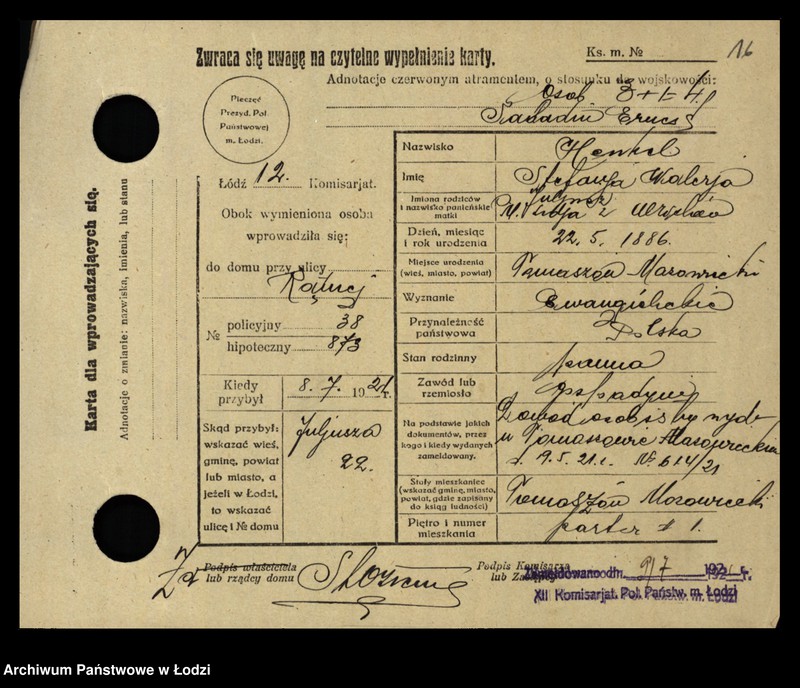 Zwraca się uwagę na czytelne wypełnienie karty.
Ks. m. №
16
Adnotacje czerwonym atramentem, o stosunku do wojskowości:
Osob
Pieczęć
Prezyd. Pol.
Państwowej
m. Łodzi.
Łódź 12. Komisarjat.
Obok wymieniona osoba
wprowadziła się:
do domu przy ulicy
№
policyjny 38
hipoteczny 873
Kiedy
przybył
8. 7. 1921 r.
Skąd przybył:
wskazać wieś,
gminę, powiat
lub miasto, a
jeżeli w Łodzi,
to wskazać
ulicę i № domu
Juljusza
22.
Nazwisko
Henkel
Imię
Stefanja Walerja
Imiona rodziców
i nazwisko panieńskie
matki
Juljusz
Dzień, miesiąc
i rok urodzenia
22. 5. 1886.
Miejsce urodzenia
(wieś, miasto, powiat)
Tomaszów Mazowiecki
Wyznanie
Ewangielickie
Przynależność
państwowa
Polska
Stan rodzinny
panna
Zawód lub
rzemiosło
gospodyni
Na podstawie jakich
dokumentów, przez
kogo i kiedy wydanych
zameldowany.
Dowód osobisty wyd.
w Tomaszowie Mazowieckim
d. 19.5.21 r. № 614/21
Stały mieszkaniec
(wskazać gminę, miasto,
powiat, gdzie zapisany
do ksiąg ludności)
Tomaszów Mazowiecki
Piętro i numer
mieszkania
parter 1.
Za
Podpis właściciela
lub rządcy domu
Podpis Komisarza
lub
Zameldowano dn. 9/7 1921 r.
XII Komisarjat. Pol. Państw. m. Łodzi
Karta dla wprowadzających się.
Adnotacje o zmianie: nazwiska, imienia, lub stanu
Archiwum Państwowe w Łodzi